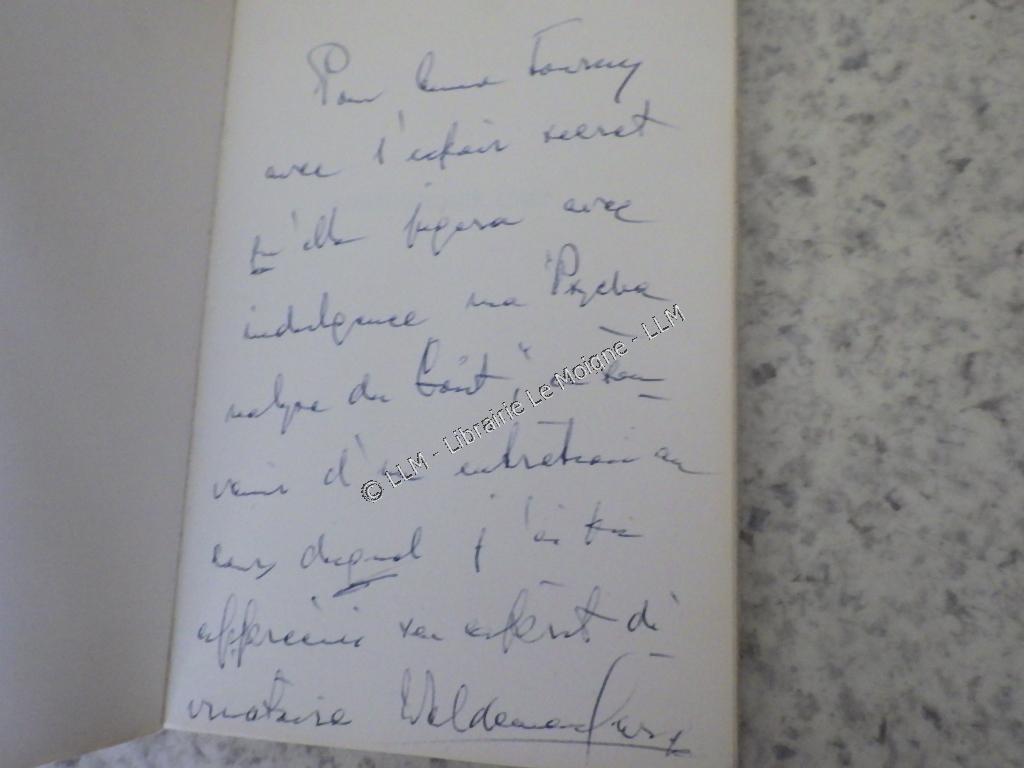 Pour Anna Tourny
avec l'espoir secret
qu'elle jugera avec
indulgence ma "Psycha
nalyse du Goût" en sou
venir d'un entretien au
cours duquel j'ai
apprécié son esprit di
Waldemar
© LLM - Librairie Le Moigne - LLM